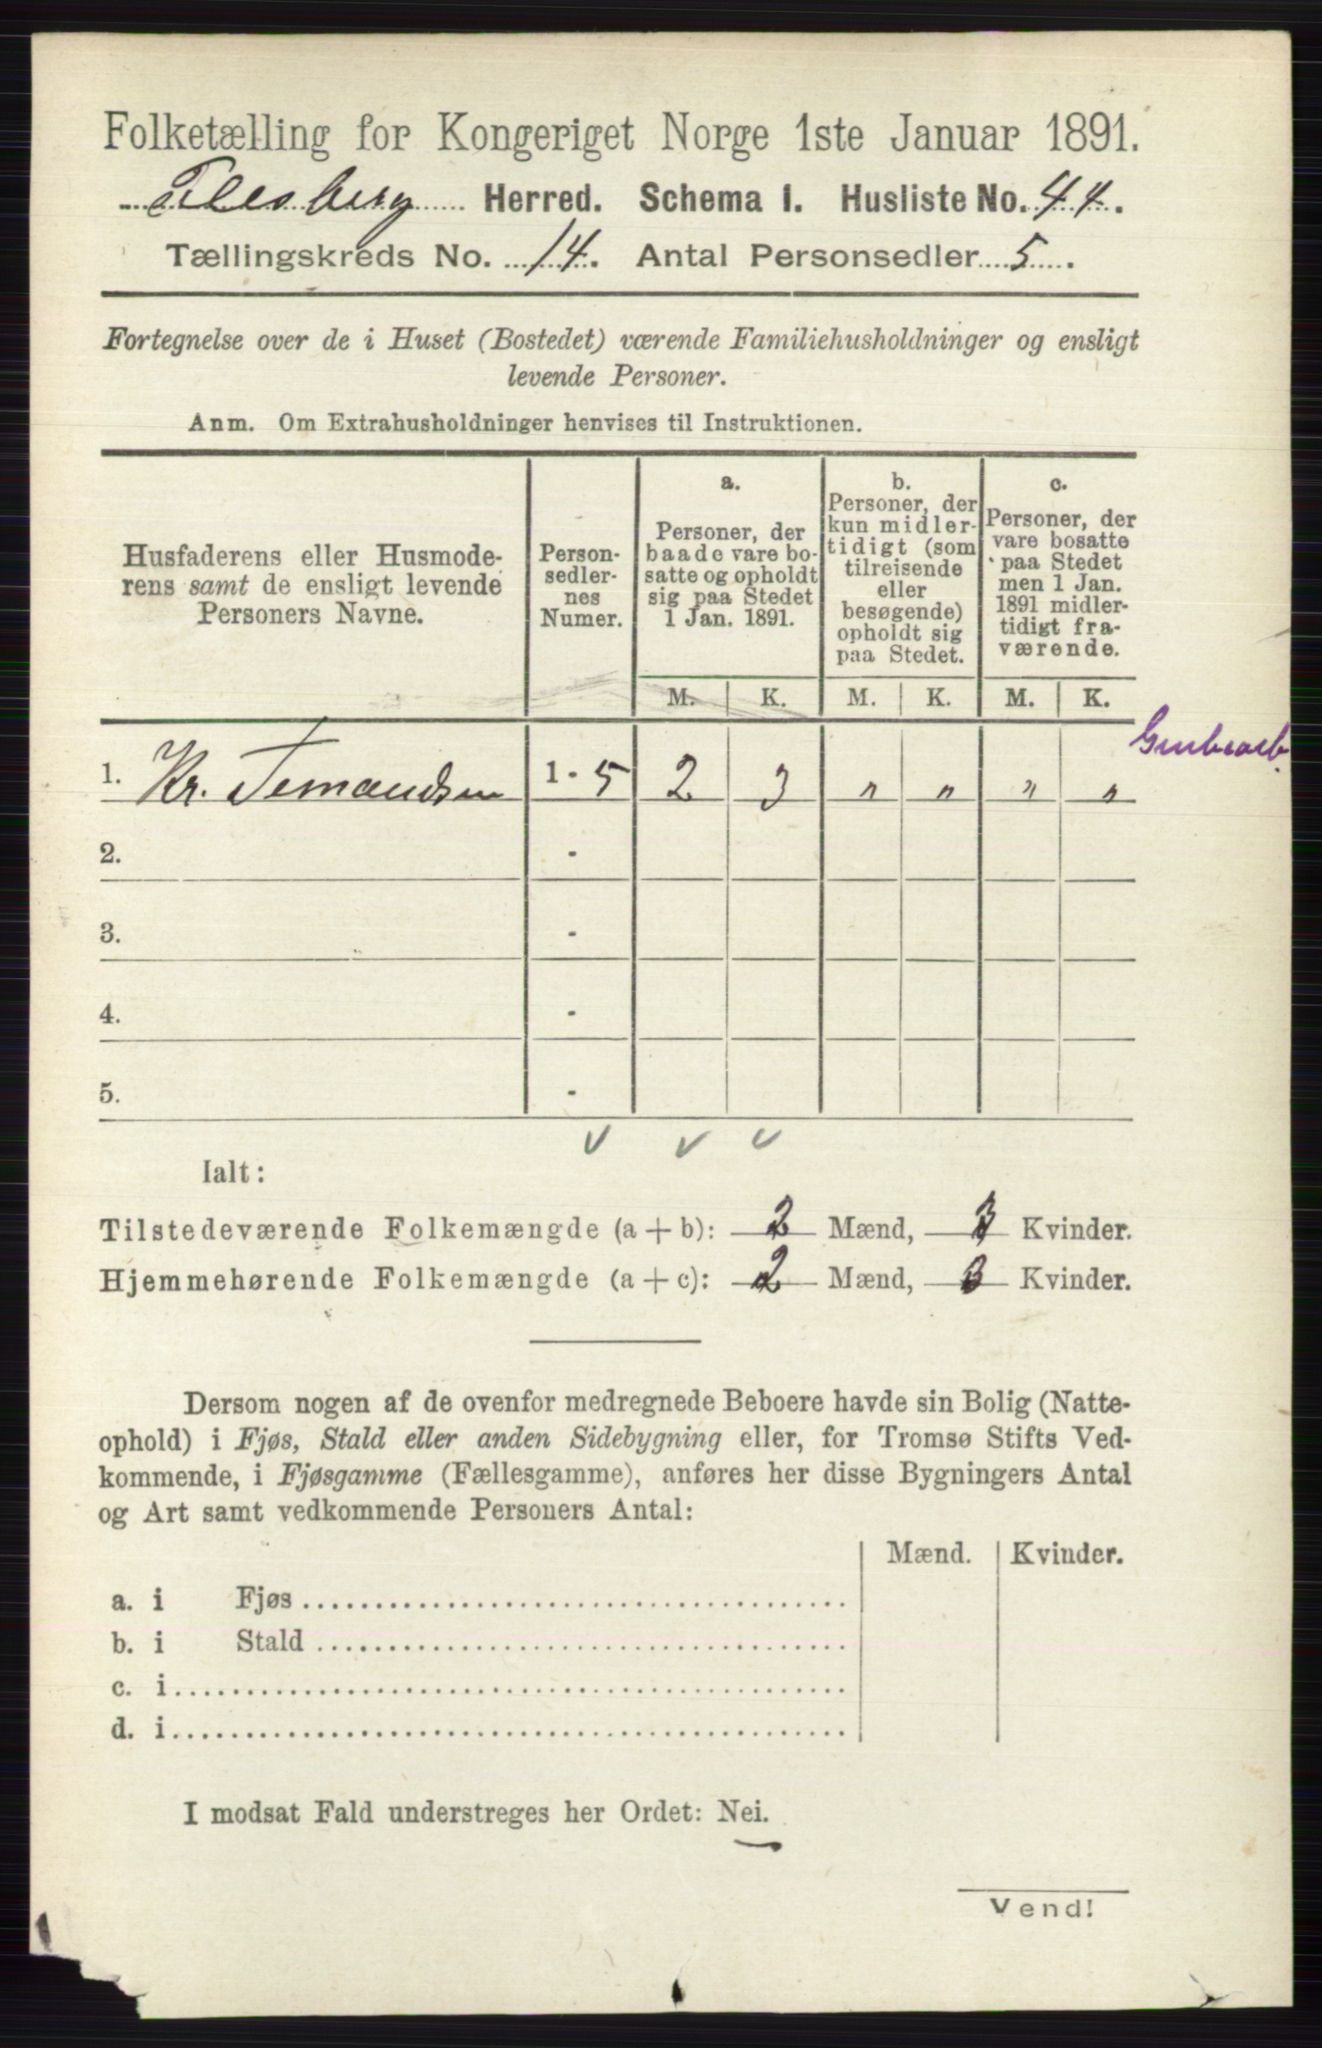 Folketælling for Kongeriget Norge 1ste Januar 1891.
Flesberg Herred. Schema I. Husliste No. 44.
Tællingskreds No. 14. Antal Personsedler 5.
Fortegnelse over de i Huset (Bostedet) værende Familiehusholdninger og ensligt
levende Personer.
Anm. Om Extrahusholdninger henvises til Instruktionen.
Husfaderens eller Husmode-
rens samt de ensligt levende
Personers Navne.
Person-
sedler-
nes
Numer.
a.
Personer, der
baade vare bo-
satte og opholdt
sig paa Stedet
1 Jan. 1891.
b.
Personer, der
kun midler-
tidigt (som
tilreisende
eller
besøgende)
opholdt sig
paa Stedet.
c.
Personer, der
vare bosatte
paa Stedet
men 1 Jan.
1891 midler-
tidigt fra-
værende.
M. K. M. K. M. K.
Grubearb.
1. Kr. Temandsen 1 - 5 2 3 " " " "
2. -
3. -
4. -
5. -
Ialt:
Tilstedeværende Folkemængde (a + b): 2 Mænd, 3 Kvinder.
Hjemmehørende Folkemængde (a + c): 2 Mænd, 3 Kvinder.
Dersom nogen af de ovenfor medregnede Beboere havde sin Bolig (Natte-
ophold) i Fjøs, Stald eller anden Sidebygning eller, for Tromsø Stifts Ved-
kommende, i Fjøsgamme (Fællesgamme), anføres her disse Bygningers Antal
og Art samt vedkommende Personers Antal:
Mænd. Kvinder.
a. i Fjøs
b. i Stald
c. i
d. i
I modsat Fald understreges her Ordet: Nei.
Vend!